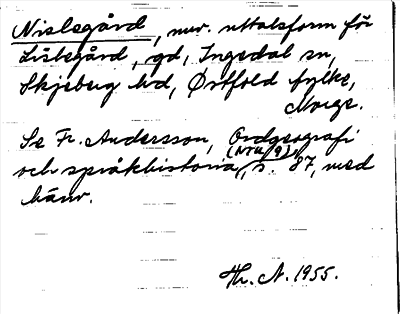 Nislegård, nuv. uttalsform för
Lislegård, gd, Ingedal sn,
Skjeberg hd, Østfold fylke,
Norge.
Se Fr. Andersson, Ordgeografi
och språkhistoria (NTU 9), s. 87, med
hänv.
Hr. N. 1955.